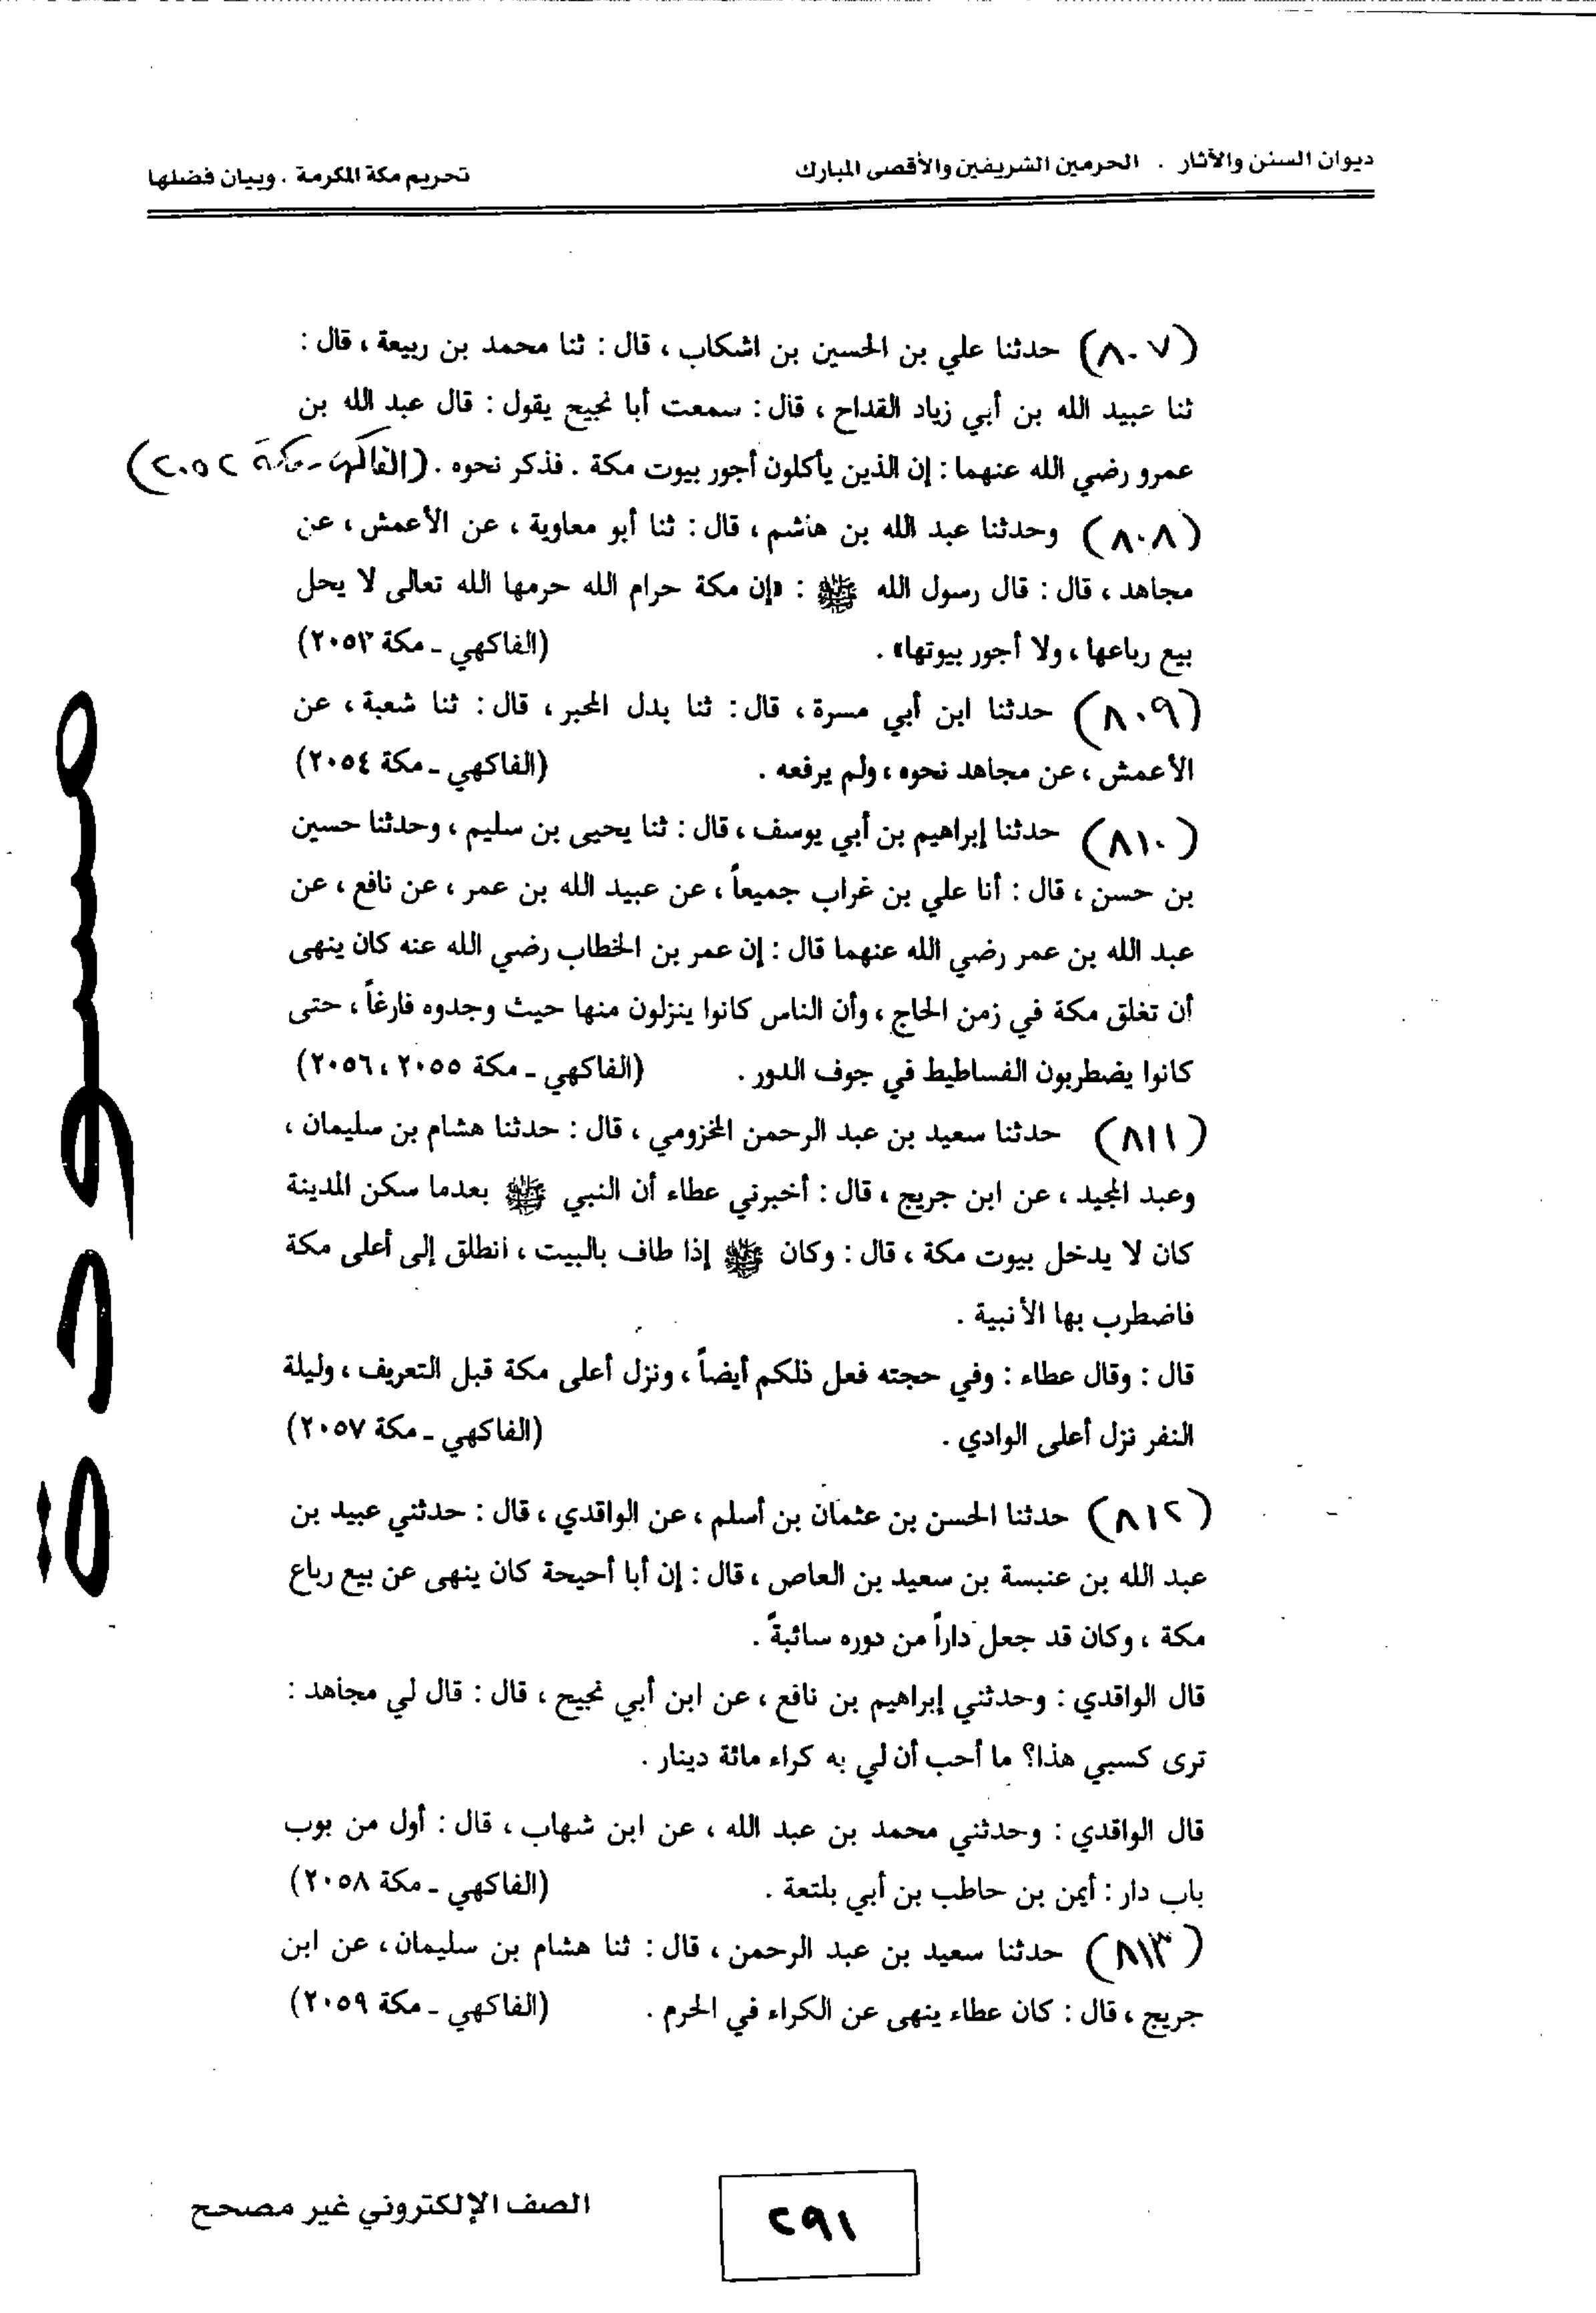 ديوان السنن والآثار . الحرمين الشريفين والأقصى المبارك
تحريم مكة المكرمة . وبيان فضلها
(٨٠٧) حدثنا علي بن الحسين بن اشكاب ، قال : ثنا محمد بن ربيعة ، قال :
ثنا عبيد الله بن أبي زياد القداح ، قال : سمعت أبا نجيح يقول : قال عبد الله بن
عمرو رضي الله عنهما : إن الذين يأكلون أجور بيوت مكة . فذكر نحوه . (الفاكهي - مكة ٢٠٥٢)
(٨٠٨) وحدثنا عبد الله بن هاشم ، قال : ثنا أبو معاوية ، عن الأعمش ، عن
مجاهد ، قال : قال رسول الله ﷺ : «إن مكة حرام الله حرمها الله تعالى لا يحل
بيع رباعها ، ولا أجور بيوتها» . (الفاكهي - مكة ٢٠٥٣)
(٨٠٩) حدثنا ابن أبي مسرة ، قال : ثنا بدل المحبر ، قال : ثنا شعبة ، عن
الأعمش ، عن مجاهد نحوه ، ولم يرفعه . (الفاكهي - مكة ٢٠٥٤)
(٨١٠) حدثنا إبراهيم بن أبي يوسف ، قال : ثنا يحيى بن سليم ، وحدثنا حسين
بن حسن ، قال : أنا علي بن غراب جميعاً ، عن عبيد الله بن عمر ، عن نافع ، عن
عبد الله بن عمر رضي الله عنهما قال : إن عمر بن الخطاب رضي الله عنه كان ينهى
أن تغلق مكة في زمن الحاج ، وأن الناس كانوا ينزلون منها حيث وجدوه فارغاً ، حتى
كانوا يضطربون الفساطيط في جوف الدور . (الفاكهي - مكة ٢٠٥٥ ، ٢٠٥٦)
(٨١١) حدثنا سعيد بن عبد الرحمن المخزومي ، قال : حدثنا هشام بن سليمان ،
وعبد المجيد ، عن ابن جريج ، قال : أخبرني عطاء أن النبي ﷺ بعدما سكن المدينة
كان لا يدخل بيوت مكة ، قال : وكان ﷺ إذا طاف بالبيت ، انطلق إلى أعلى مكة
فاضطرب بها الأنبية .
قال : وقال عطاء : وفي حجته فعل ذلكم أيضاً ، ونزل أعلى مكة قبل التعريف ، وليلة
النفر نزل أعلى الوادي . (الفاكهي - مكة ٢٠٥٧)
(٨١٢) حدثنا الحسن بن عثمان بن أسلم ، عن الواقدي ، قال : حدثني عبيد بن
عبد الله بن عنبسة بن سعيد بن العاص ، قال : إن أبا أحيحة كان ينهى عن بيع رباع
مكة ، وكان قد جعل داراً من دوره سائبةً .
قال الواقدي : وحدثني إبراهيم بن نافع ، عن ابن أبي نجيح ، قال : قال لي مجاهد :
ترى كسبي هذا؟ ما أحب أن لي به كراء مائة دينار .
قال الواقدي : وحدثني محمد بن عبد الله ، عن ابن شهاب ، قال : أول من بوب
باب دار : أيمن بن حاطب بن أبي بلتعة . (الفاكهي - مكة ٢٠٥٨)
(٨١٣) حدثنا سعيد بن عبد الرحمن ، قال : ثنا هشام بن سليمان ، عن ابن
جريج ، قال : كان عطاء ينهى عن الكراء في الحرم . (الفاكهي - مكة ٢٠٥٩)
مسودة
٢٩١
الصف الإلكتروني غير مصحح